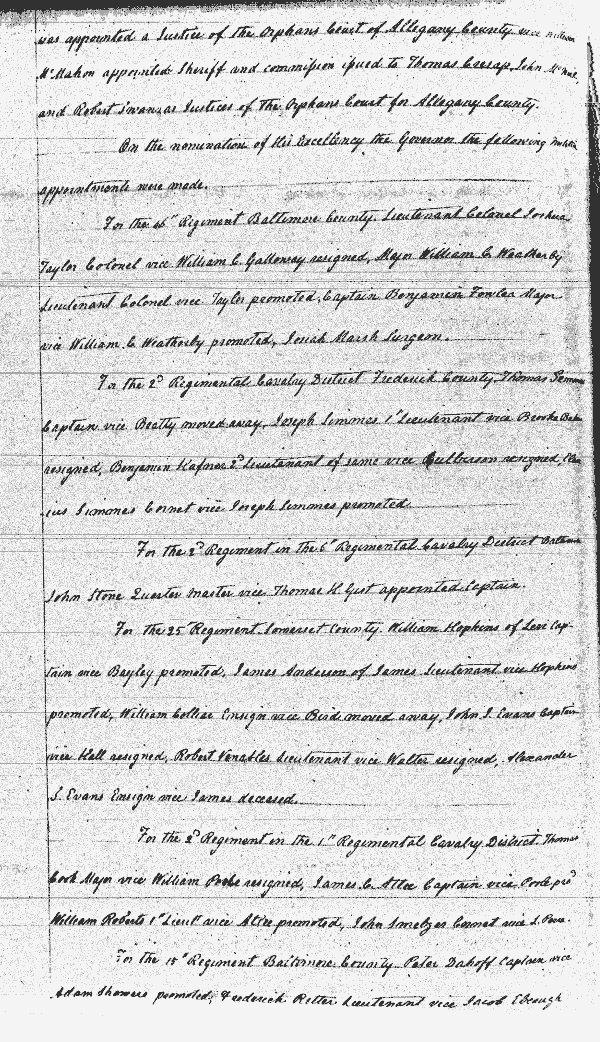 was appointed a Justice of the Orphans Court of Allegany County vice
McMahon appointed Sheriff and commission issued to Thomas Cresap, John McNeil,
and Robert Swan, as Justices of the Orphans Court for Allegany County.
On the nomination of His Excellency the Governor the following militia
appointments were made.
For the 46" Regiment Baltimore County. Lieutenant Colonel Joshua
Taylor Colonel vice William C. Galloway resigned, Major William C. Weatherby
Lieutenant Colonel vice Taylor promoted, Captain Benjamin Fowler Major
vice William C. Weatherby promoted, Josiah Marsh Surgeon.
For the 2d Regimental Cavalry District Frederick County. Thomas
Captain vice Beatty moved away, Joseph Simmes 1" Lieutenant vice Brooke
resigned, Benjamin Hafner 2d Lieutenant of same vice resigned,
Simmes Cornet vice Joseph Simmes promoted
For the 2d Regiment in the 6" Regimental Cavalry District
John Stone Quarter master vice Thomas H. Gist appointed Captain.
For the 25" Regiment Somerset County. William Hopkins of Levi Cap-
tain vice Bayley promoted, James Anderson of James Lieutenant vice Hopkins
promoted, William Collier Ensign vice Bird moved away, John S. Evans Captain
vice Hall resigned, Robert Venables Lieutenant vice Walter resigned, Alexander
S. Evans Ensign vice James deceased.
For the 2d Regiment in the 1" Regimental Cavalry District. Thomas
Cook Major vice William Poole resigned, James C. Atlee Captain vice Poole prod
William Roberts 1" Lieut vice Atlee promoted, John Smelzer Cornet vice
For the 15" Regiment Baltimore County. Peter Dahoff Captain vice
Adam Showers promoted, Frederick Ritter Lieutenant vice Jacob